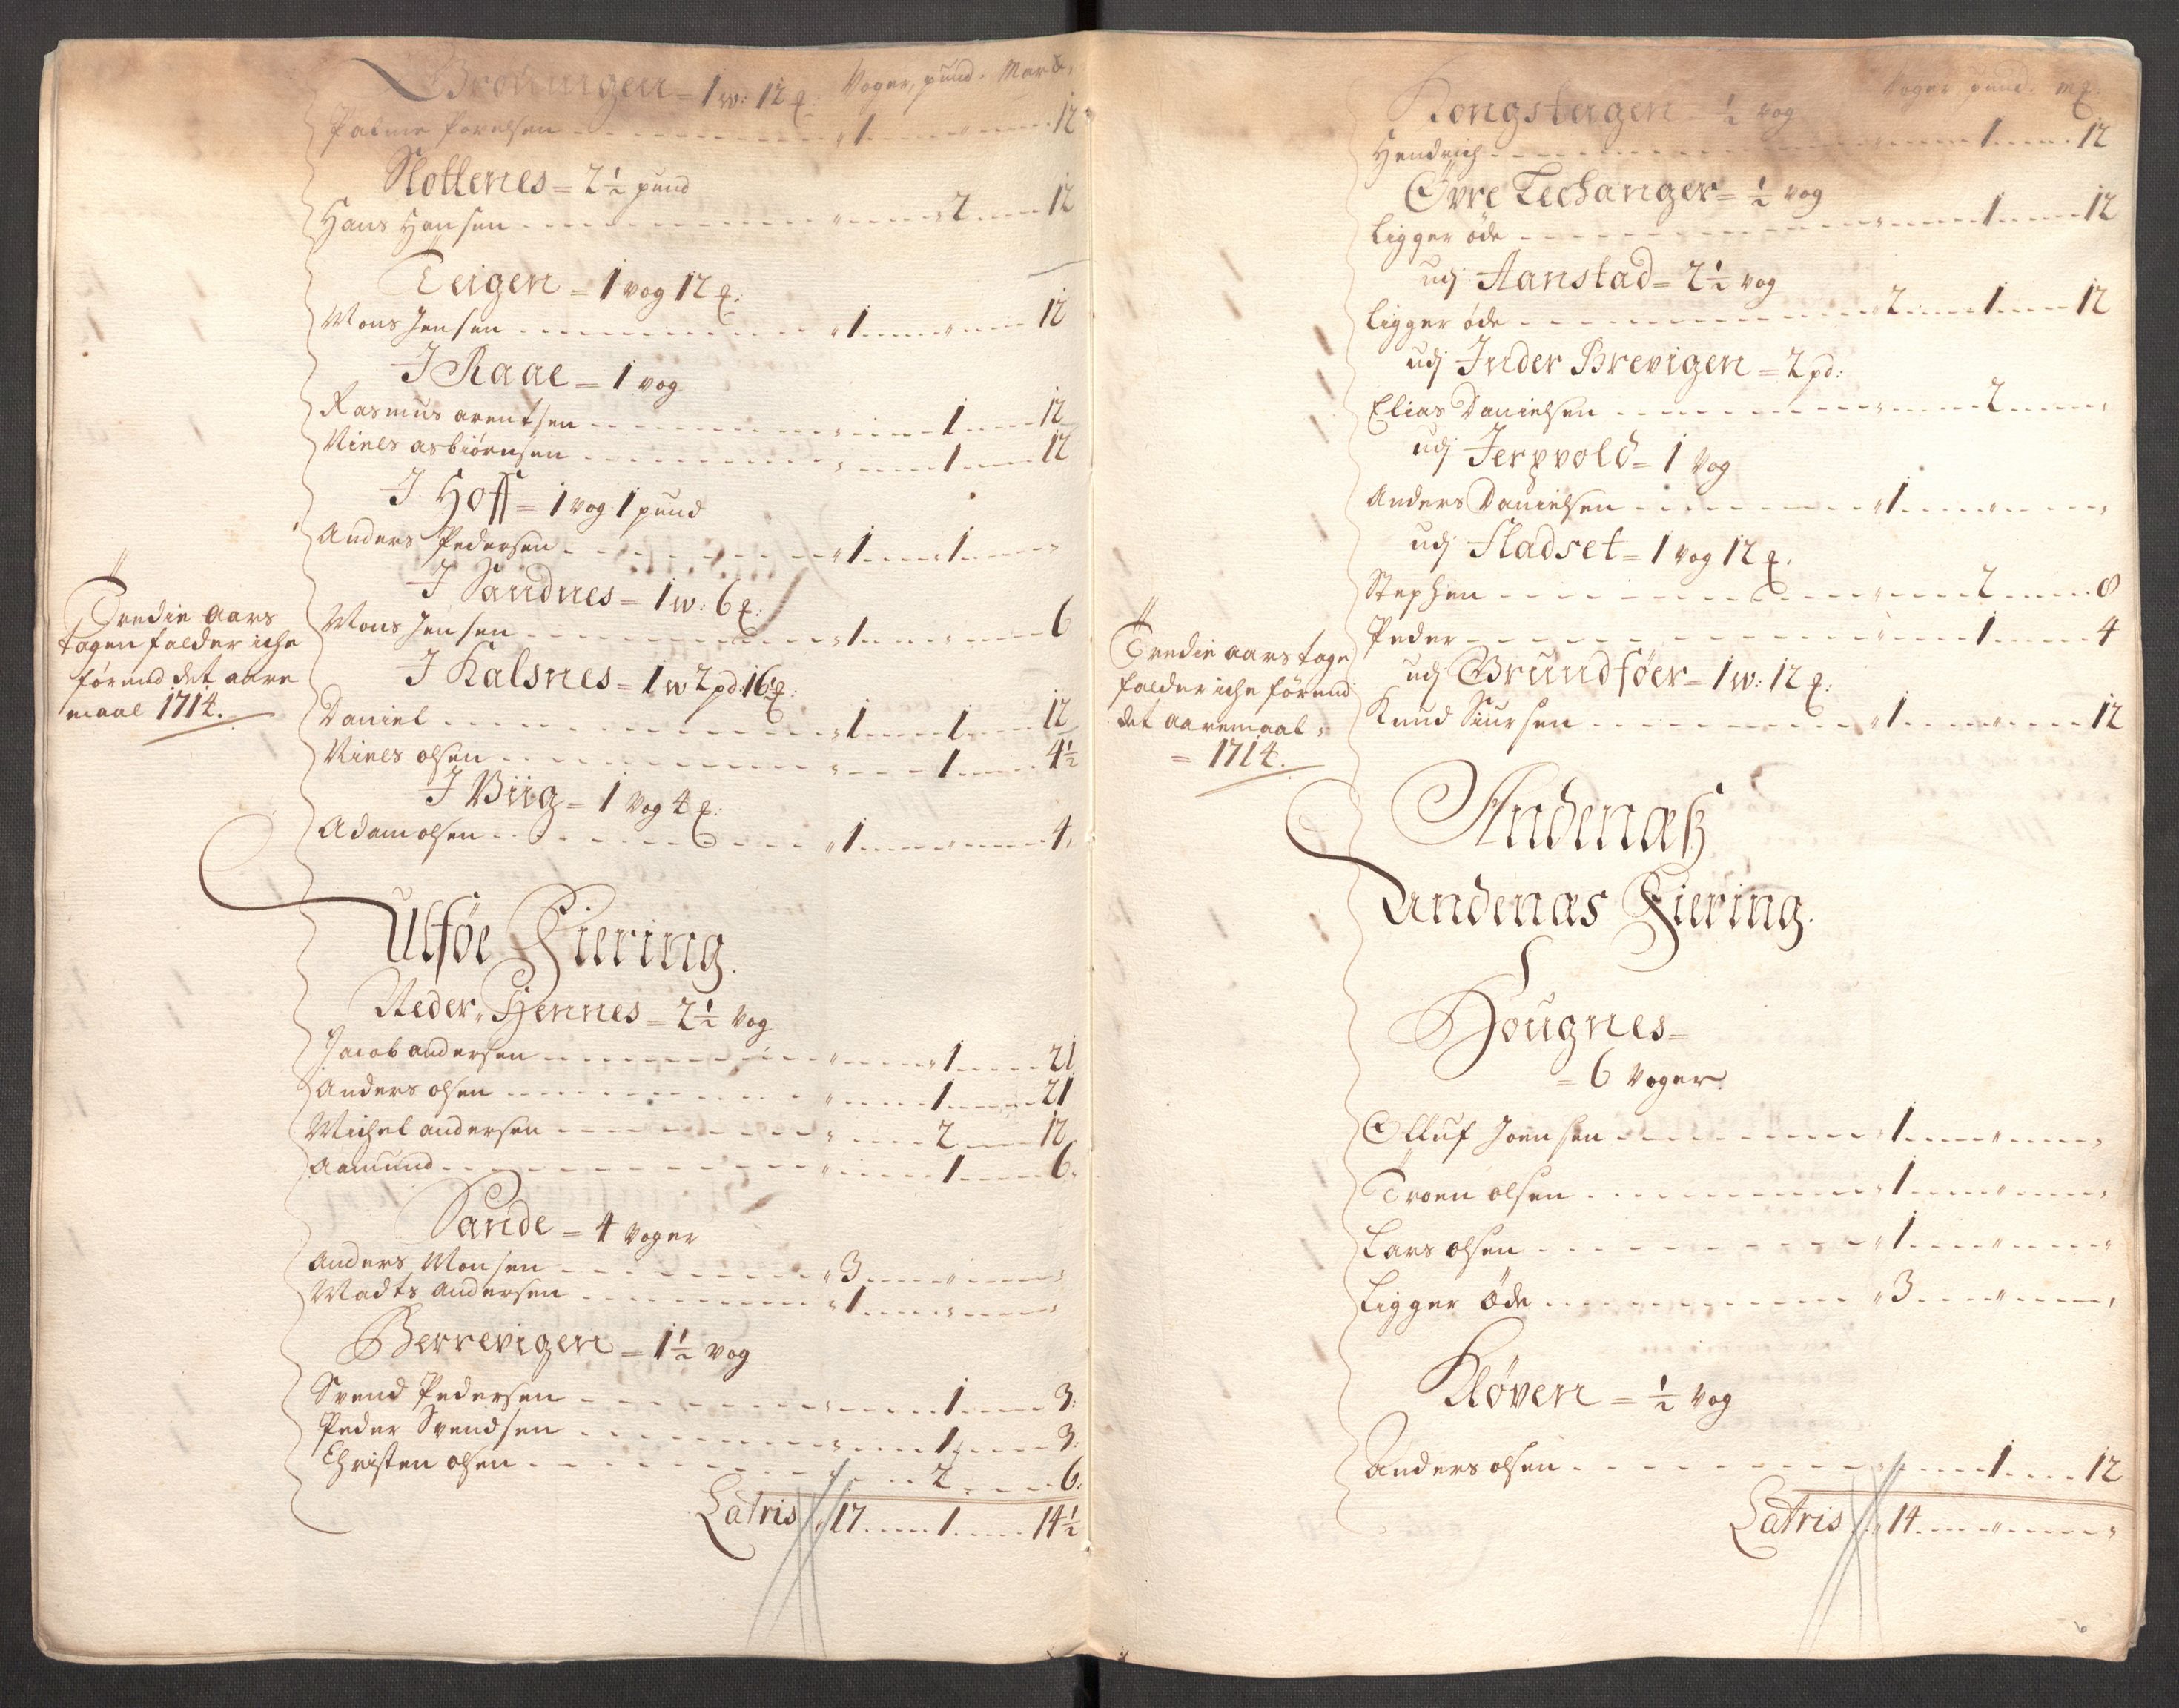 Voger, pund. Mark,
1 w: 12 ℔:
1 " 12
Slottenes = 2½ pund
Hans Hansen " 2 12
Teigen = 1 vog 12 ℔:
Mons Jensen 1 " 12
J Raae = 1 vog
Rasmus arentsen " 1 12
Niels asbiørnsen " 1 12
J Hoff = 1 vog 1 pund
Anders Pedersen 1 1 "
J Sandnes = 1 w: 6 ℔:
Mons Jensen 1 " 6
J Kalsnes = 1 w 2 pd: 16½ ℔:
Daniel 1 1 12
Niels olsen " 1 4½
J Viig = 1 vog 4 ℔:
Adam olsen 1 " 4,
"
Tredie aars
tagen falder iche
førend det aare
maal 1714.
Ulføe Fiering.
Neder Hennes = 2½ vog
Jacob andersen " 1 21
Anders olsen " 1 21
Michel andersen " 2 12
Aamund " 1 6
Sande = 4 voger
Anders Monsen 3 " "
Madts Andersen 1 " "
Berrevigen = 1½ vog
Svend Pedersen " 1 3:
Peder Svendsen " 1 3:
Christen olsen " 2 6:
Latris 17 1 14½
Voger pund. M℔.
Kongsteigen = ½ vog
Hendrich " 1 12
Øvre Techanger = ½ vog
ligger øde " 1 12
udj Aanstad = 2½ vog
ligger øde 2 1 12
udj Inder Brevigen = 2 pd:
Elias Danielsen " 2 "
udj Jerpvold = 1 vog
Anders Danielsen 1 " "
udj Fladset = 1 vog 12 ℔.
Stephen " 2 8
Peder " 1 4
udj Grundføer = 1 w: 12 ℔:
Knud Siursen 1 " 12
"
Tredie aars tage
falder iche førend
det aaremaal
= 1714.
Andenæß
Andenæs Fiering.
Hougnes =
= 6 voger
Olluf Joensen 1 " "
Troen olsen 1 " "
Lars olsen 1 " "
Ligger Øde 3 " "
Kløven = ½ vog
Anders olsen " 1 12
Latris 14 " "